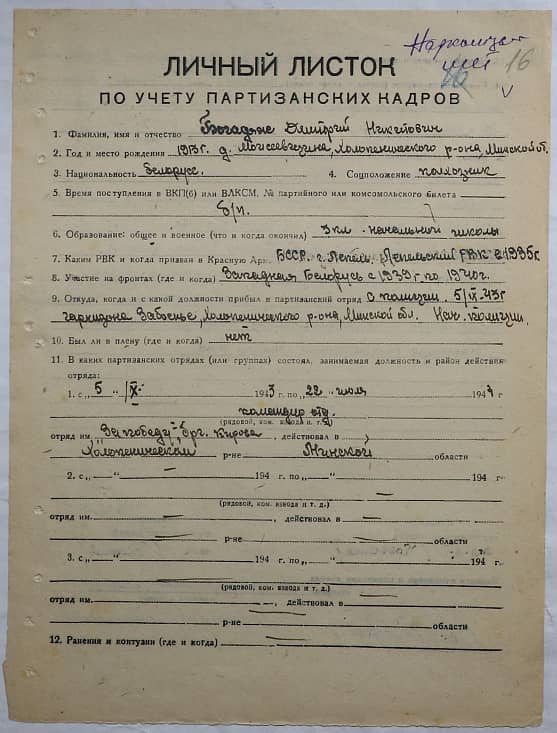 16
ЛИЧНЫЙ ЛИСТОК
ПО УЧЕТУ ПАРТИЗАНСКИХ КАДРОВ
1. Фамилия, имя и отчество Дмитрий
2. Год и место рождения 1913 г. д. Холопенического р-она, Минской
3. Национальность белорус. 4. Соцположение колхозник
5. Время поступления в ВКП(б) или ВЛКСМ, № партийного или комсомольского билета
б/п.
6. Образование: общее и военное (что и когда окончил) 3 кл. начальной школы
7. Каким РВК и когда призван в Красную Арм. БССР. г. Лепель. Лепельский РВК с 1935 г.
8. Участие на фронтах (где и когда) Западная Белорусь с 1939 г. по 1940 г.
9. Откуда, когда и с какой должности прибыл в партизанский отряд с полиции. 5/IX-43 г
гарнизона Забоенье, Холопенического р-она, Минской обл. Нач. полиции.
10. Был ли в плену (где и когда) нет
11. В каких партизанских отрядах (или группах) состоял, занимаемая должность и район действия
отряда:
1. с „ 5 “ IX 1943 г. по „ 22 “ июля 194
командир отд.
(рядовой, ком. взвода и т. д.)
отряд им. „За победу“ бр. Кирова, действовал в
Холопеническом р-не Минской области
2. с „—“ 194 г. по „—“ 194 г.
(рядовой, ком. взвода и т. д.)
отряд им. —, действовал в —
— р-не — области
3. с „—“ 194 г. по „—“ 194 г.
(рядовой, ком. взвода и т. д.)
отряд им. —, действовал в —
р-не области
12. Ранения и контузии (где и когда) —